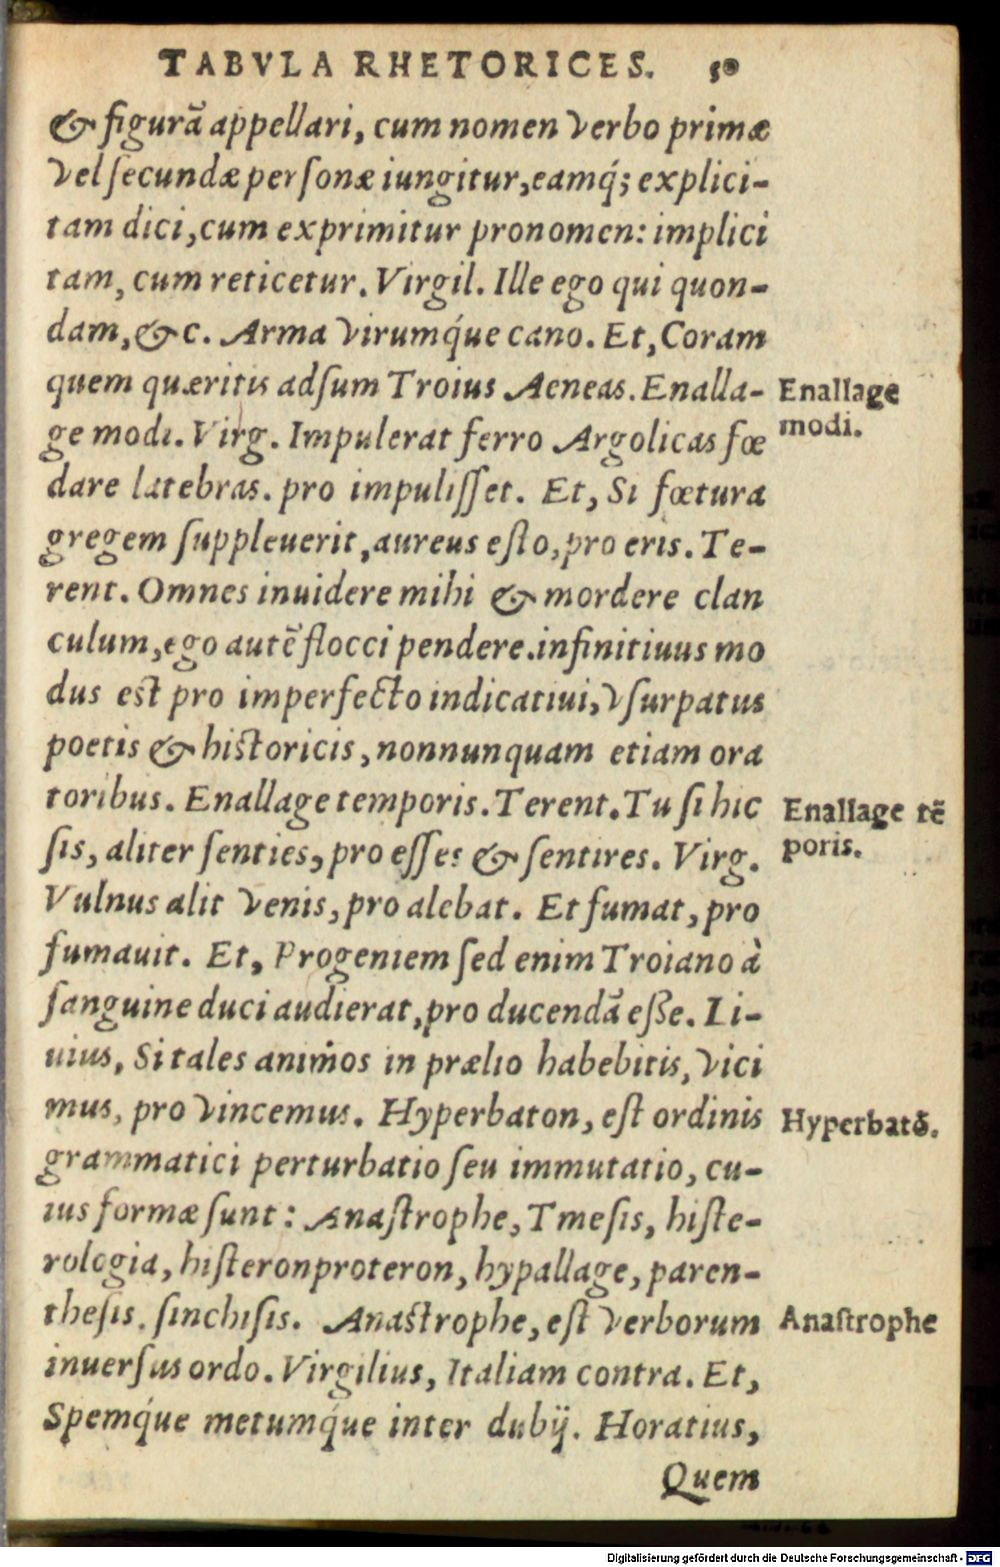 TABVLA RHETORICES. 50
& figurā appellari, cum nomen verbo primæ
vel ſecundæ perſonæ iungitur, eamq́; explici-
tam dici, cum exprimitur pronomen: implici
tam, cum reticetur. Virgil. Ille ego qui quon-
dam, &c. Arma virumq́ue cano. Et, Coram
quem quæritis adſum Troius Aeneas. Enalla-
Enallage
ge modi. Virg. Impulerat ferro Argolicas fœ
modi.
dare latebras. pro impuliſſet. Et, Si fœtura
gregem ſuppleuerit, aureus eſto, pro eris. Te-
rent. Omnes inuidere mihi & mordere clan
culum, ego autē flocci pendere. infinitiuus mo
dus eſt pro imperfecto indicatiui, vſurpatus
poetis & hiſtoricis, nonnunquam etiam ora
toribus. Enallage temporis. Terent. Tu ſi hic
Enallage tē
ſis, aliter ſenties, pro eſſes & ſentires. Virg.
poris.
Vulnus alit venis, pro alebat. Et fumat, pro
fumauit. Et, Progeniem ſed enim Troiano à
ſanguine duci audierat, pro ducendā eſſe. Li-
uius, Si tales animos in prælio habebitis, vici
mus, pro vincemus. Hyperbaton, eſt ordinis
Hyperbatō.
grammatici perturbatio ſeu immutatio, cu-
ius formæ ſunt: Anaſtrophe, Tmeſis, hiſte-
rologia, hiſteronproteron, hypallage, paren-
theſis. ſinchiſis. Anaſtrophe, eſt verborum
Anaſtrophe
inuerſus ordo. Virgilius, Italiam contra. Et,
Spemq́ue metumq́ue inter dubij. Horatius,
Quem
Digitalisierung gefördert durch die Deutsche Forschungsgemeinschaft - DFG